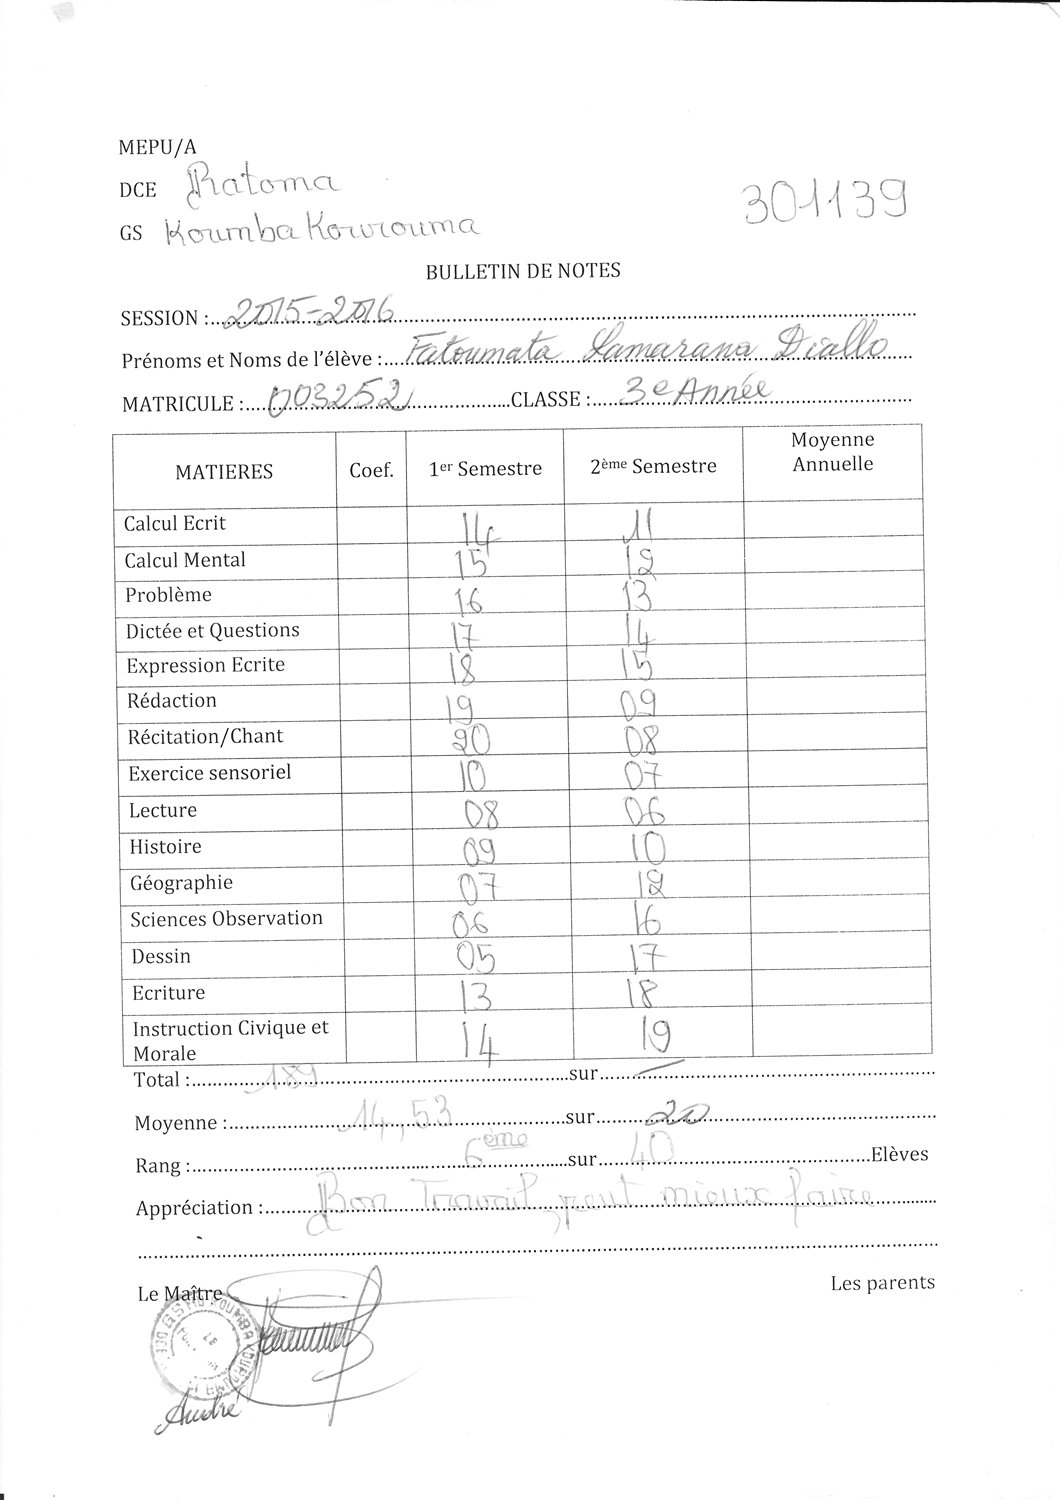 MEPU/A
DCE Ratoma
301139
GS Koumba Kourouma
BULLETIN DE NOTES
SESSION : 2015-2016
Prénoms et Noms de l'élève : Fatoumata Lamarana Diallo
MATRICULE : 003252 CLASSE : 3e Année
MATIERES Coef. 1er Semestre 2ème Semestre Moyenne Annuelle
Calcul Ecrit 14 11
Calcul Mental 15 12
Problème 16 13
Dictée et Questions 17 14
Expression Ecrite 18 15
Rédaction 19 09
Récitation/Chant 20 08
Exercice sensoriel 10 07
Lecture 08 06
Histoire 09 10
Géographie 07 12
Sciences Observation 06 16
Dessin 05 17
Ecriture 13 18
Instruction Civique et Morale 14 19
Total : 189 sur
Moyenne : 14,53 sur 20
Rang : 6ème sur 40 Elèves
Appréciation : Bon Travail, peut mieux faire
Le Maître Les parents
André